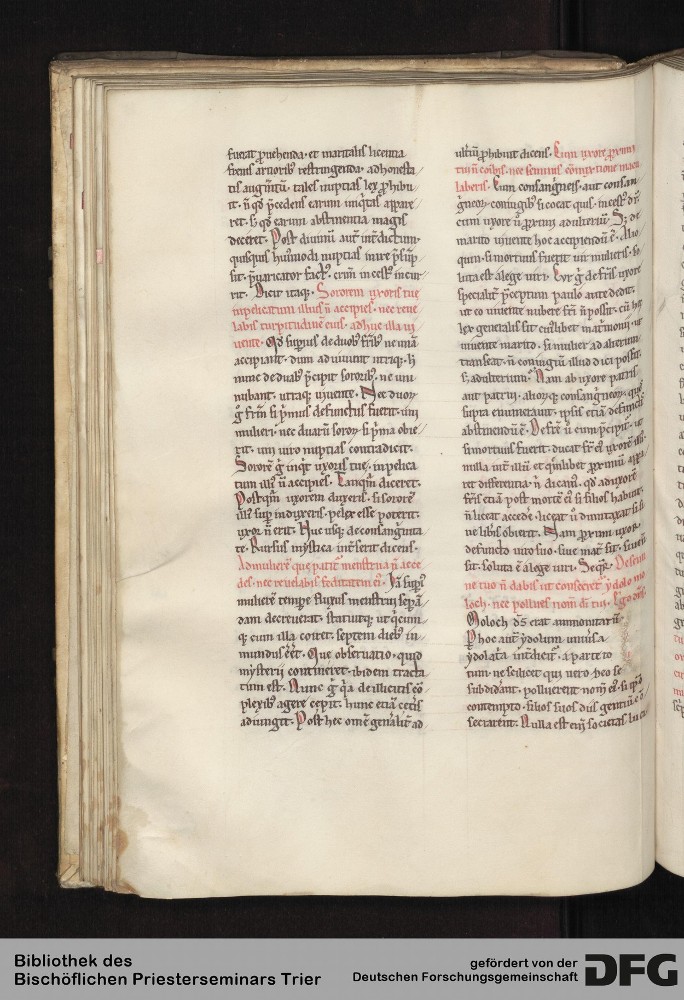 fuerat ꝓuehenda· et maritalis licentia
frenis artiorib᷒ restringenda· ad honesta
tis augm̅tu̅· tales nuptias lex ꝓhibu
it· n̅ qd̅ p̅cedens earum iniq̅tas appare
ret· sꝫ qd̅ earum abstinentia magis
deceret· Post diuinu̅ aut̅ int̅dictum·
quisquis hui᷒modi nuptias inire p̅su̅p
sit· p̅uaricator fact᷒· crim̅ incest᷒ incur
rit· Dicit itaq̅· Sororem uxoris tue
inpelicatum illius n̅ accipies· nec reue
labis turpitudine̅ eius· adhuc illa ui
uente· Qd̅ sup̅ius de duob᷒ fr̅ib᷒ ne una̅
accipiant· dum aduiuunt utriq̅· h̅
nunc de duab᷒ p̅cipit sororib᷒· ne uni
nubant· utraq̅ uiuente· Nec duor̅
g̅ fr̅m si p̅mus defunctus fuerit· uni
mulieri· nec duaru̅ soror̅ si p̅ma obie
rit· uni uiro nuptias contradicit·
Sorore̅ g̅ inq̅t uxoris tue· in pelica
tum illi᷒ n̅ accipies· Tanqm̅ diceret·
Postqm̅ uxorem duxeris· si sorore̅
illi᷒ sup̅ induxeris· pelex esse poterit·
uxor n̅ erit· Huc usq̅ de consang̅nita
te· Rursus mystica inserit dicens·
Ad muliere̅ que patit᷒ menstrua n̅ acce
des· nec reuelabis feditatem ei᷒· Ia̅ sup̅i᷒
muliere̅ tempe̅ fluxus menstrui sep̅a̅
dam decreuerat· statuitq̅ ut q̅cum
q̅ cum illa coiret· septem dieb᷒ in
mundus e̅e̅t· Que obseruatio· quid
mysterii contineret· ibidem tracta
tum est· Nunc g̅ q̅a de illicitis co̅
plexib᷒ agere cepit· hunc etia̅ cet̅is
adiungit· Post hec om̅e gen̅alit̅ ad
ult̅iu̅ ꝓhibuit dicens· Cum uxore ꝓximi
tui n̅ coibis· nec seminis co̅mixtione macu
laberis· Cum consang̅neis· aut consan
g̅neor̅ coniugib᷒ si coeat quis· incest᷒ dr̅·
cum uxore u̅ ꝓximi adulteriu̅· Sꝫ de
marito uiuente hoc accipiendu̅ e̅· Alio
quin si mortuus fuerit uir mulieris· so
luta est a lege uiri· Cur g̅ de fr̅is uxore
specialit̅ p̅ceptum paulo ante dedit·
ut eo uiuente nubere fr̅i n̅ possit· cu̅ hec
lex generalis sit cui᷒libet mat̅monii· ut
uiuente marito· si mulier ad alterum
transeat· n̅ coniugiu̅ illud dici possit·
sꝫ adulterium· Nam ab uxore patris
aut patrui· alior̅q̅ consang̅neor̅· quos
supra enumerauit· ipsis etia̅ defunctis
abstinendu̅ e̅· De fr̅e u̅ cum p̅cipit· ut
si mortuus fuerit· ducat fr̅ ei᷒ uxore̅ illi᷒·
nulla int̅ illu̅ et que̅libet ꝓximu̅ appa
ret differentia· n̅ dicam᷒· qd̅ ad uxore̅
fr̅is etia̅ post morte̅ ei᷒ si filios habuit·
n̅ liceat accede̅· liceat u̅ dumtaxat si si
ne lib̅is obierit· Nam ꝓximi uxor·
defuncto uiro suo· siue mat̅ sit· siue n̅
sit· soluta e̅ a lege uiri· Seq̅r· De semi
ne tuo n̅ dabis ut consecret᷒ ydolo mo
loch· nec pollues nom̅ di̅ tui· Ego dn̅s·
Moloch d̅s̅ erat ammonitaru̅·
Per hoc aut̅ ydolum· uniu̅sa
ydolat̅a int̅dicit᷒· a parte to
tum· ne scilicet qui uero deo se
subdidant· polluerent nom̅ ei᷒· si ip̅o
contempto· filios suos diis gentiu̅ co̅
secrarent· Nulla est eni̅ societas luci
Bibliothek des
Bischöflichen Priesterseminars Trier
gefördert von der
Deutschen Forschungsgemeinschaft
DFG